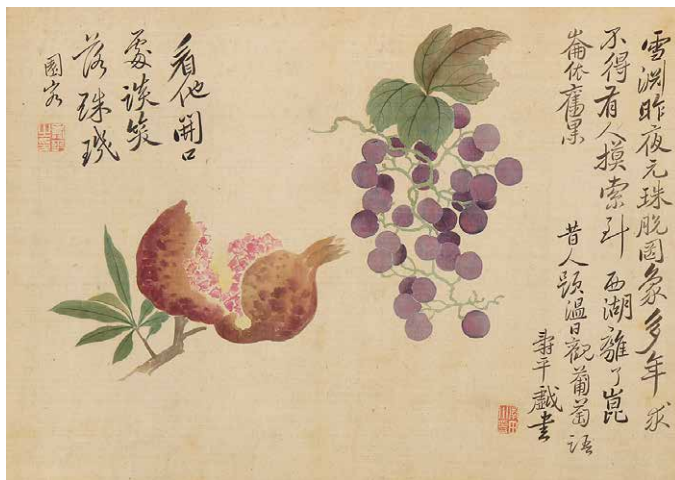 雪淵昨夜元珠脱罔象多年求
不得有人摸索到西湖離了崑
崙依舊黑
昔人題溫日觀葡萄語
壽平戲書
看他開口
處談笑
落珠璣
園客